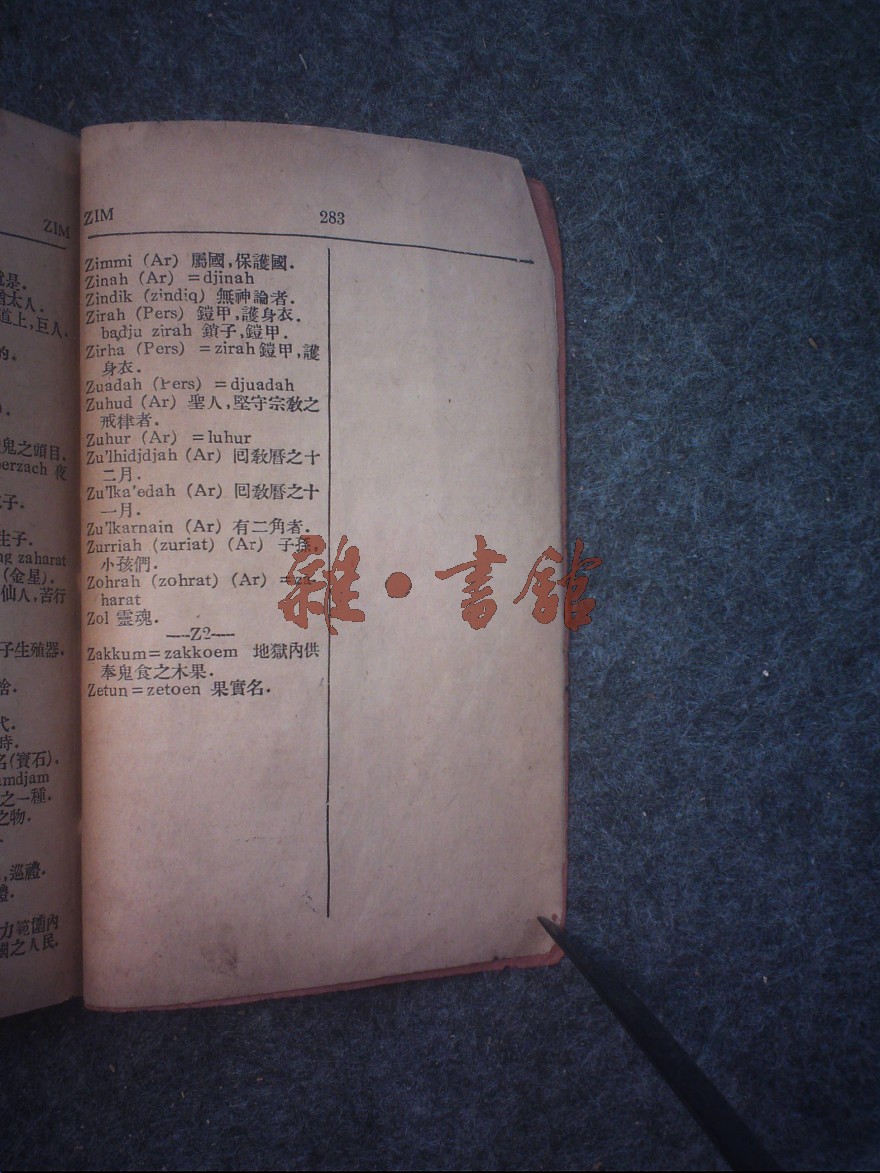 ZIM
是.
猶太人.
道上,巨人.
的.
鬼之頭目.
berzach 夜
子.
生子.
ng zaharat
(金星).
仙人,苦行
子生殖器.
捨.
代.
時.
名(寶石).
amdjam
之一種.
之物.
,巡禮.
禮.
力範圍內
國之人民.
ZIM 283
Zimmi (Ar) 屬國,保護國.
Zinah (Ar) =djinah
Zindik (zindiq) 無神論者.
Zirah (Pers) 鎧甲,護身衣.
badju zirah 鎖子,鎧甲.
Zirha (Pers) =zirah鎧甲,護
身衣.
Zuadah (Pers) =djuadah
Zuhud (Ar) 聖人,堅守宗敎之
戒律者.
Zuhur (Ar) =luhur
Zu'lhidjdjah (Ar) 囘敎曆之十
二月.
Zu'lka'edah (Ar) 囘敎曆之十
一月.
Zu'lkarnain (Ar) 有二角者.
Zurriah (zuriat) (Ar) 子孫,
小孩們.
Zohrah (zohrat) (Ar) =za-
harat
Zol 靈魂.
—Z2—
Zakkum=zakkoem 地獄內供
奉鬼食之木果.
Zetun=zetoen 果實名.
雜·書館